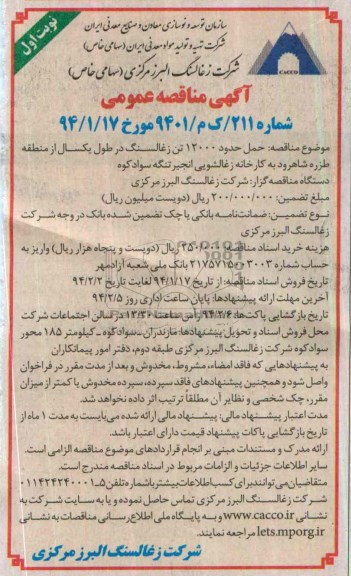 نوبت اول
سازمان توسعه و نوسازی معادن و صنایع معدنی ایران
شرکت تهیه و تولید مواد معدنی ایران (سهامی خاص)
شرکت زغالسنگ البرز مرکزی (سهامی خاص)
CACCO
آگهی مناقصه عمومی
شماره ۲۱۱/ک م/۹۴۰۱ مورخ ۹۴/۱/۱۷
موضوع مناقصه: حمل حدود ۱۲۰۰۰ تن زغالسنگ در طول یکسال از منطقه
طزره شاهرود به کارخانه زغالشویی انجیر تنگه سوادکوه
دستگاه مناقصه گزار: شرکت زغالسنگ البرز مرکزی
مبلغ تضمین: ۲۰۰/۰۰۰/۰۰۰ ریال (دویست میلیون ریال)
نوع تضمین: ضمانت‌نامه بانکی یا چک تضمین شده بانک در وجه شرکت
زغالسنگ البرز مرکزی
هزینه خرید اسناد مناقصه: ریال (دویست و پنجاه هزار ریال) واریز به
حساب شماره بانک ملی شعبه آزادمهر
تاریخ فروش اسناد مناقصه: از تاریخ ۹۴/۱/۱۷ لغایت تاریخ ۹۴/۲/۲
آخرین مهلت ارائه پیشنهادها: پایان ساعت اداری روز ۹۴/۲/۵
تاریخ بازگشایی پاکت‌ها: ۹۴/۲/۶ رأس ساعت ۱۳:۳۰ در سالن اجتماعات شرکت
محل فروش اسناد و تحویل پیشنهادها: مازندران ـ سوادکوه ـ کیلومتر ۱۸۵ محور
سوادکوه شرکت زغالسنگ البرز مرکزی طبقه دوم، دفتر امور پیمانکاران
به پیشنهادهایی که فاقد امضاء، مشروط، مخدوش و بعد از مدت مقرر در فراخوان
واصل شود و همچنین پیشنهادهای فاقد سپرده، سپرده مخدوش یا کمتر از میزان
مقرر، چک شخصی و نظایر آن مطلقاً ترتیب اثر داده نخواهد شد.
مدت اعتبار پیشنهاد مالی: پیشنهاد مالی ارائه شده می‌بایست به مدت ۱ ماه از
تاریخ بازگشایی پاکات پیشنهاد قیمت دارای اعتبار باشد.
ارائه مدرک و مستندات مبنی بر انجام قراردادهای موضوع مناقصه الزامی است.
سایر اطلاعات جزئیات و الزامات مربوط در اسناد مناقصه مندرج است.
متقاضیان می‌توانند برای کسب اطلاعات بیشتر با شماره تلفن ۵ـ۰۱۱۴۲۴۲۴۰۰۰۱
شرکت زغالسنگ البرز مرکزی تماس حاصل نموده و یا به سایت شرکت به
نشانی www.cacco.ir و به پایگاه ملی اطلاع رسانی مناقصات به نشانی
iets.mporg.ir مراجعه نمایند.
شرکت زغالسنگ البرز مرکزی